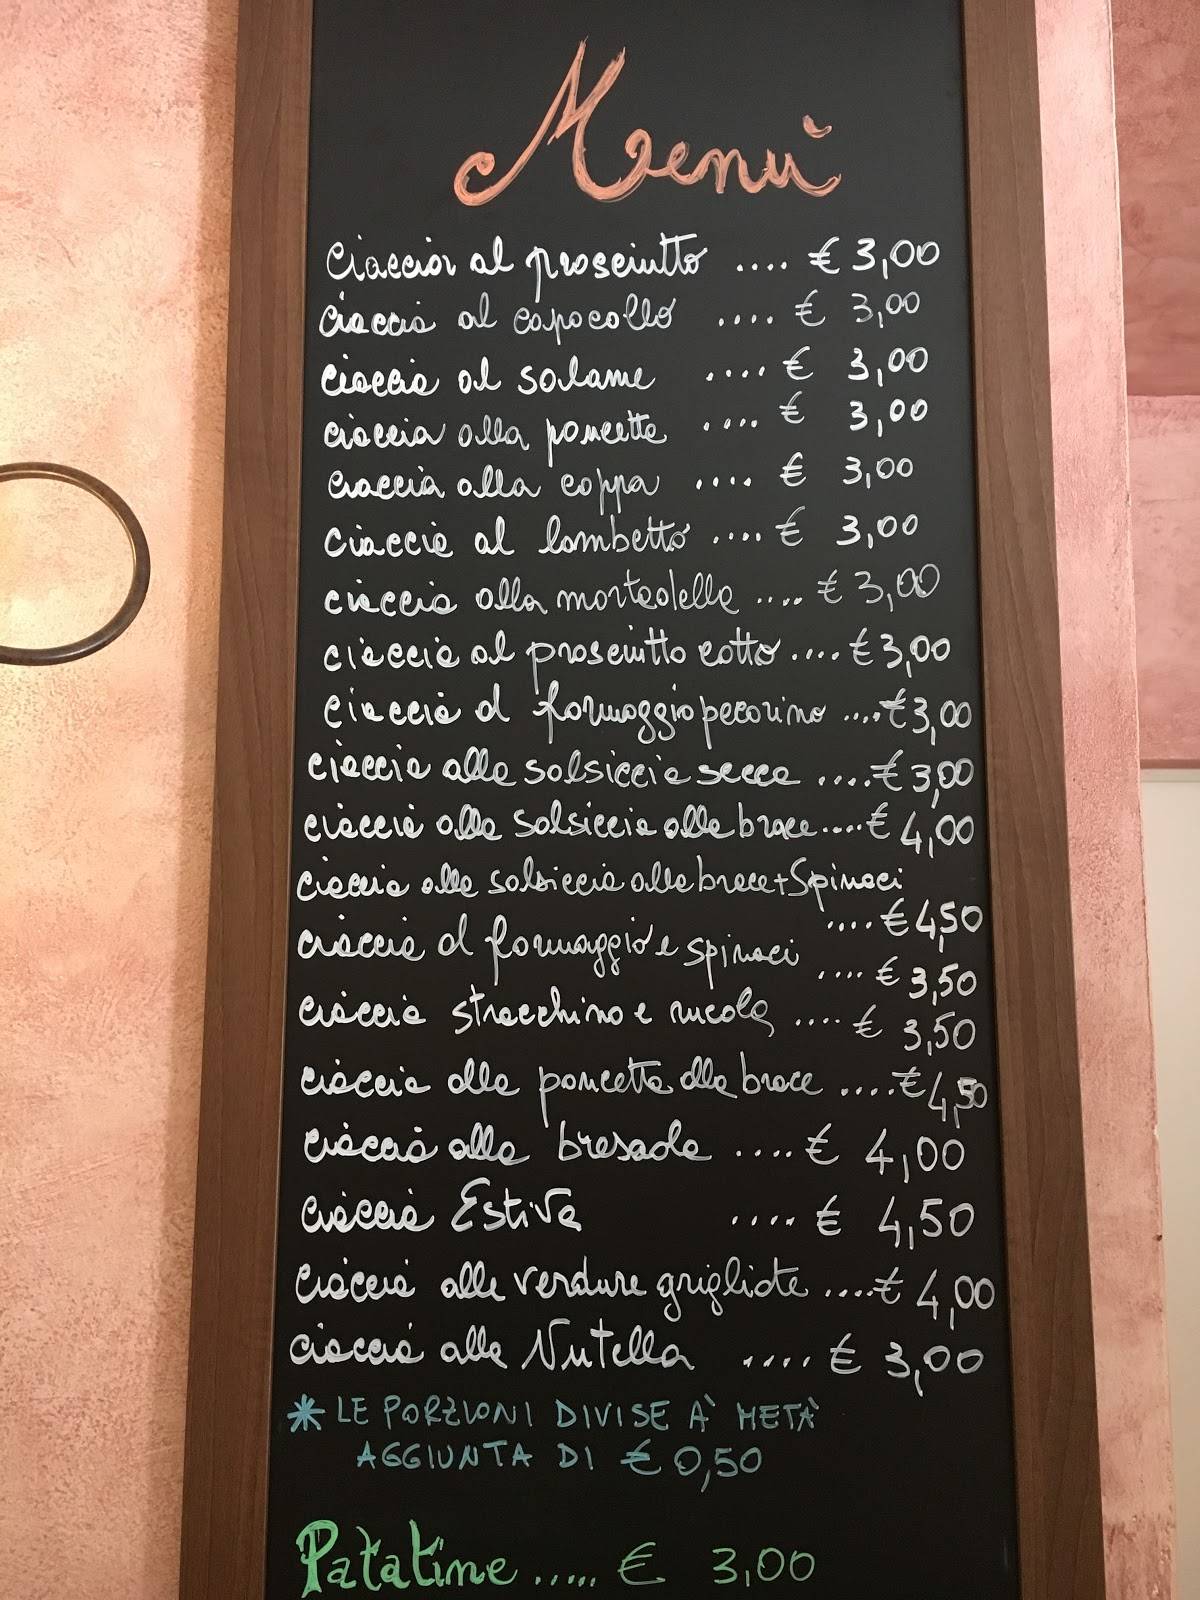 Menù
ciaccia al prosciutto .... € 3,00
ciaccia al capocollo .... € 3,00
ciaccia al salame .... € 3,00
ciaccia alla pancetta .... € 3,00
ciaccia alla coppa .... € 3,00
ciaccia al lombetto .... € 3,00
ciaccia alla mortadella .... € 3,00
ciaccia al prosciutto cotto .... € 3,00
ciaccia al formaggio pecorino .... € 3,00
ciaccia alla salsiccia secca .... € 3,00
ciaccia alla salsiccia alla brace .... € 4,00
ciaccia alla salsiccia alla brace + Spinaci
.... € 4,50
ciaccia al formaggio e spinaci .... € 3,50
ciaccia stracchino e rucola .... € 3,50
ciaccia alla pancetta alla brace .... € 4,50
ciaccia alla bresaola .... € 4,00
ciaccia Estiva .... € 4,50
ciaccia alle verdure grigliate .... € 4,00
ciaccia alla Nutella .... € 3,00
* LE PORZIONI DIVISE A' METÀ
AGGIUNTA DI € 0,50
Patatine ..... € 3,00